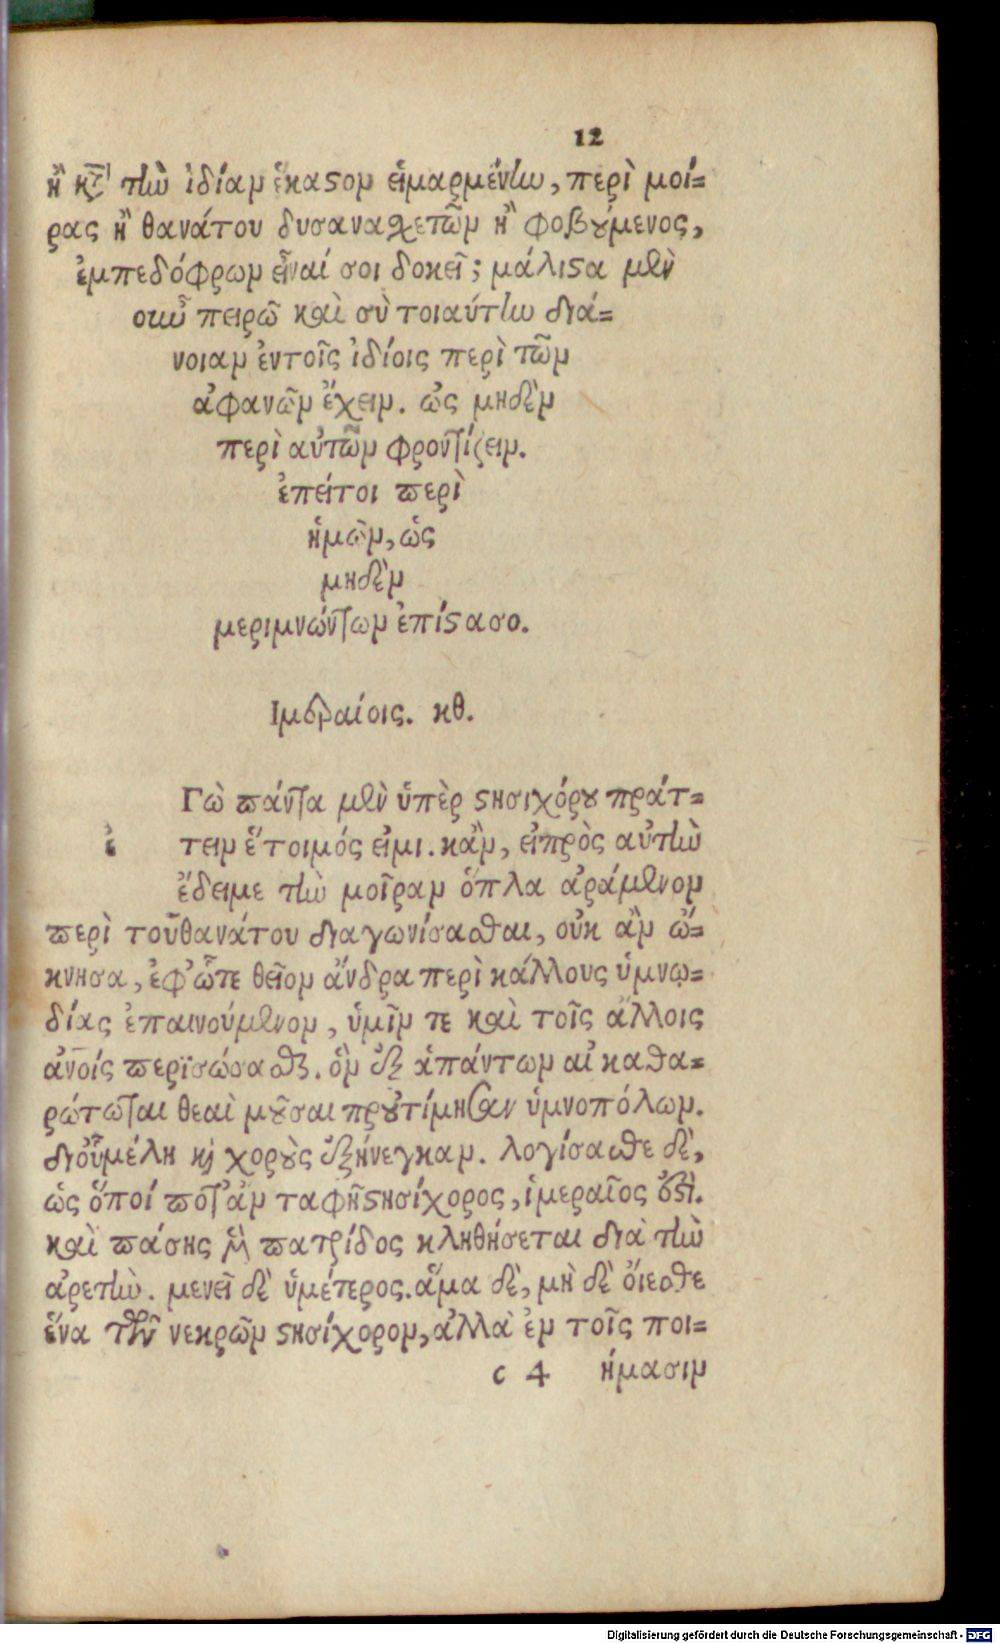 12
ἢ κτ' τὴν ἰδίαν ἕκαστον εἱμαρμένην, περὶ μοί=
ρας ἢ θανάτου δυσανασχετῶν ἢ φοβούμενος,
ἐμπεδόφρων εἶναί σοι δοκεῖ; μάλιστα μὲν
οὖν πειρῶ καὶ σὺ τοιαύτην διά=
νοιαν ἐντοῖς ἰδίοις περὶ τῶν
ἀφανῶν ἔχειν. ὡς μηδὲν
περὶ αὐτῶν φροντίζειν.
ἐπείτοι περὶ
ἡμῶν, ὡς
μηδὲν
μεριμνώντων ἐπίστασο.
Ιμεραίοις. κθ.
Γὼ πάντα μὲν ὑπὲρ στησιχόρου πράτ=
ἐ τειν ἕτοιμός εἰμι. κἂν, εἰπρὸς αὐτὴν
ἔδειμε τὴν μοῖραν ὅπλα ἀράμενον
περὶ τοῦθανάτου διαγωνίσασθαι, οὐκ ἂν ὤ=
κνησα, ἐφ' ὧτε θεῖον ἄνδρα περὶ κάλλους ὑμνῳ=
δίας ἐπαινούμενον, ὑμῖν τε καὶ τοῖς ἄλλοις
ἀνοίς περισώσασθαι. ὃν ἐξ ἁπάντων αἱ καθα=
ρώταται θεαὶ μοῦσαι προὐτίμησαν ὑμνοπόλων.
διοῦμέλη καὶ χοροὺς ἐξήνεγκαν. λογίσασθε δὲ,
ὡς ὅποί ποτ' ἂν ταφῇστησίχορος, ἱμεραῖος ἐστί.
καὶ πάσης μὲν πατρίδος κληθήσεται διὰ τὴν
ἀρετὴν. μενεῖ δὲ ὑμέτερος. ἅμα δὲ, μὴ δὲ ὄιεσθε
ἕνα τῶν νεκρῶν στησίχορον, ἀλλὰ ἐν τοῖς ποι=
c 4 ήμασιν
Digitalisierung gefördert durch die Deutsche Forschungsgemeinschaft - DFG